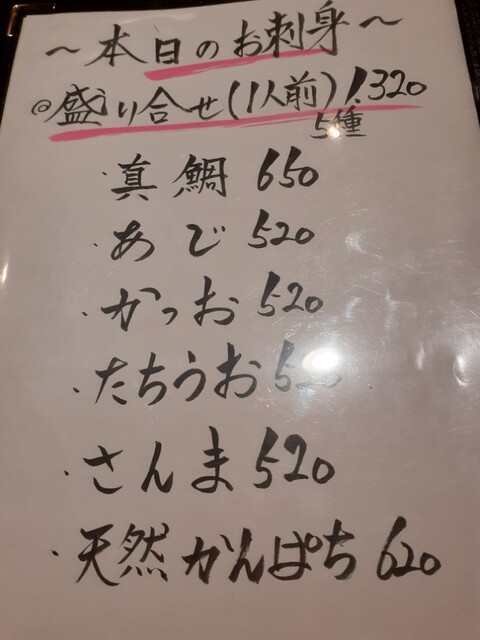 ～本日のお刺身～
◎盛り合せ(1人前)1,320
5種
・真鯛 650
・あじ 520
・かつお 520
・たちうお
・さんま 520
・天然かんぱち 620